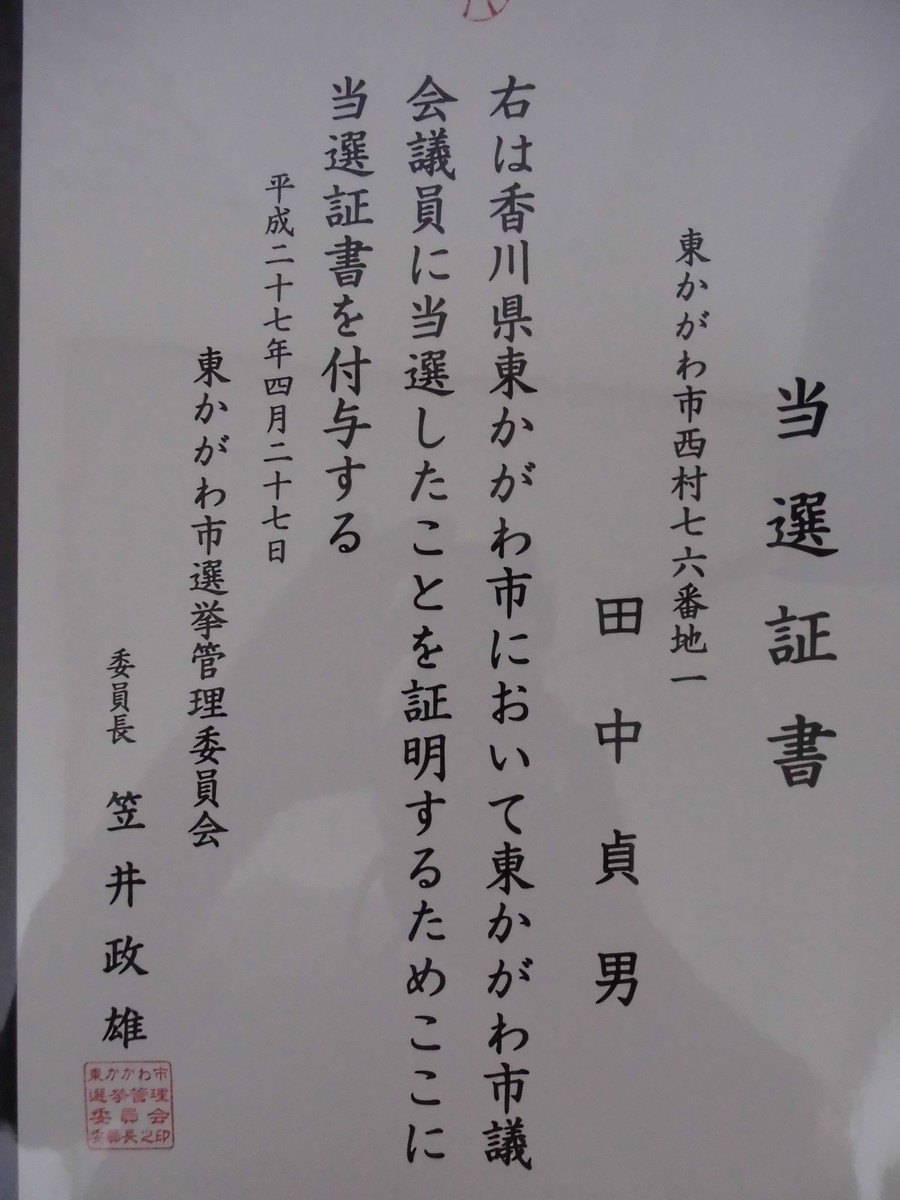 当選証書
東かがわ市西村七六番地一
田中貞男
右は香川県東かがわ市において東かがわ市議
会議員に当選したことを証明するためここに
当選証書を付与する
平成二十七年四月二十七日
東かがわ市選挙管理委員会
委員長 笠井政雄
東かがわ市
選挙管理
委員会
委員長之印